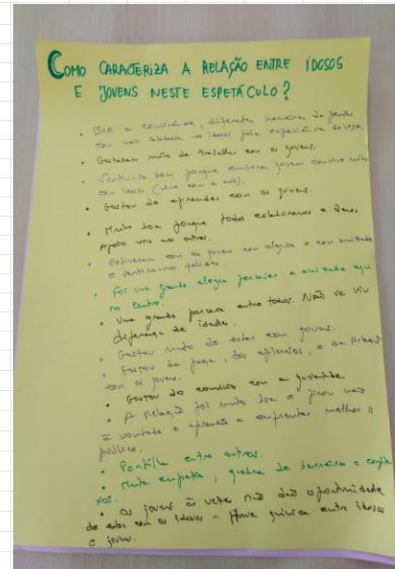 COMO CARACTERIZA A RELAÇÃO ENTRE IDOSOS
E JOVENS NESTE ESPETÁCULO?
• Boa a convivência, diferentes maneiras de pensar
com mais sabedoria os idosos pela experiência de vida.
• Gostaram muito de trabalhar com os jovens.
• Sentiu-se bem porque embora jovem convive muito
com idosos (vive com a avó).
• Gostou de aprender com os jovens.
• Muito boa porque todos colaboraram e deram
apoio uns aos outros.
• com os jovens com alegria e com amizade
e sentiram-se felizes.
• Foi uma grande alegria perceber a amizade aqui
no centro.
• Uma grande parceria entre todos. Não se viu
diferença de idades.
• Gostou muito de estar com jovens.
• Gostou da peça, dos aplausos, e da relação
com os jovens.
• Gostou do convívio com a juventude
• A relação foi muito boa e ficou mais
à vontade e aprendeu a enfrentar melhor o
público.
• Partilha entre outros.
• Muita empatia, quebra de barreiras e
• Os jovens às vezes não dão oportunidade
de estar com os idosos – Houve química entre idosos
e jovens.